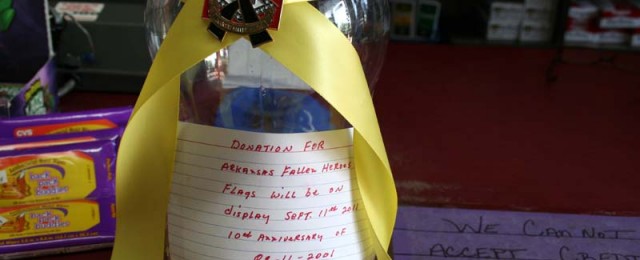 DONATION FOR
ARKANSAS FALLEN HEROES
FLAGS WILL BE ON
display SEPT. 11th 2011
10th ANNIVERSARY OF
09-11-2001
WE CAN NOT
ACCEPT CREDIT
CVS